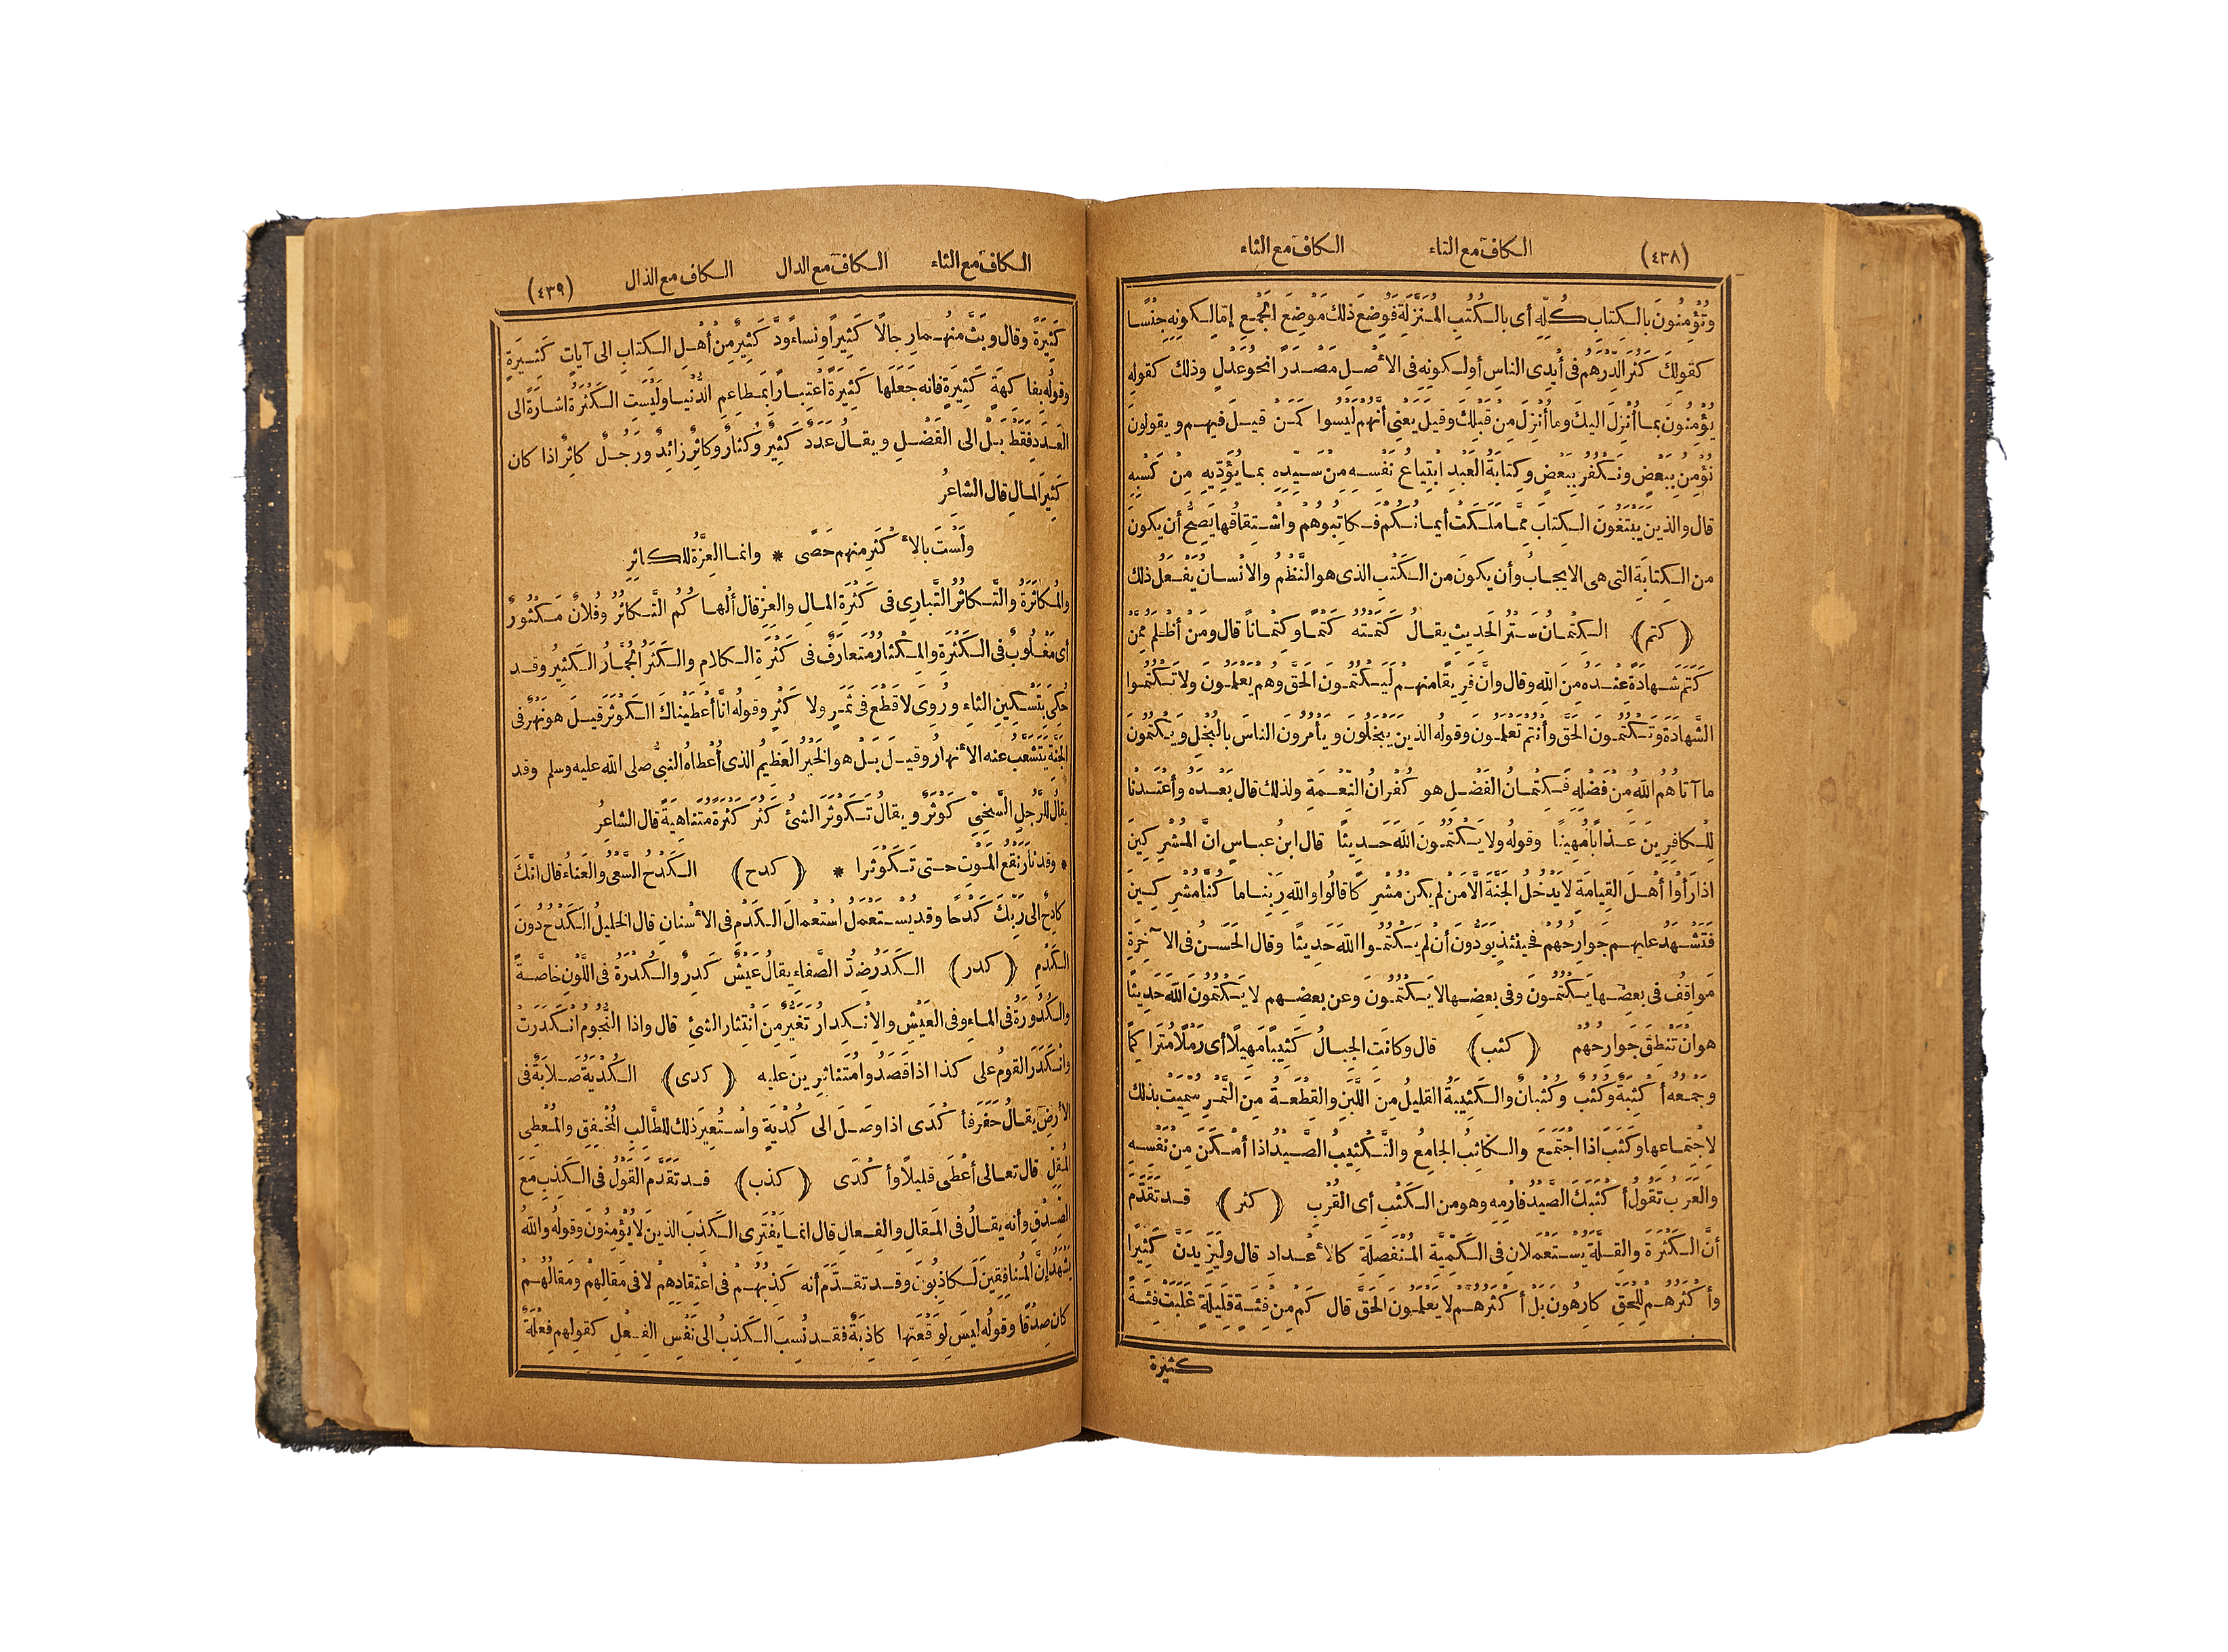 (٤٣٨) الكاف مع التاء الكاف مع الثاء
وَتُؤْمِنُونَ بِالكِتابِ كُلِّهِ أى بِالكُتُبِ المُنَزَّلَةِ فَوُضِعَ ذلك مَوْضِعَ الجَمْعِ إمّا لِكونِهِ جِنْسًا
كقولِكَ كَثُرَ الدِّرْهَمُ فى أيْدِى الناسِ أولِكونِهِ فى الأصْلِ مَصْدَرًا نحوُ عَدْلٍ وذلك كقولِهِ
يُؤْمِنُونَ بما أُنْزِلَ اليكَ وما أُنْزِلَ مِنْ قَبْلِكَ وقيلَ يَعْنِى أنَّهُمْ لَيْسُوا كَمَنْ قيلَ فيهم ويقولونَ
نُؤْمِنُ بِبَعْضٍ ونَكْفُرُ بِبَعْضٍ وكِتابَةُ العَبْدِ ابْتِياعُ نَفْسِهِ مِنْ سَيِّدِهِ بما يُؤَدِّيهِ مِنْ كَسْبِهِ
قال والذينَ يَبْتَغُونَ الكِتابَ مِمَّا مَلَكَتْ أيمانُكُمْ فَكاتِبُوهُمْ واشْتِقاقُها يَصِحُّ أن يكونَ
من الكِتابَةِ التى هى الايجابُ وأن يكونَ من الكَتْبِ الذى هو النَّظْمُ والانْسانُ يَفْعَلُ ذلك
(كتم) الكِتْمانُ سَتْرُ الحَدِيثِ يقالُ كَتَمْتُهُ كَتْمًا وكِتْمانًا قال ومَنْ أظْلَمُ مِمَّنْ
كَتَمَ شَهادَةً عِنْدَهُ مِنَ اللهِ وقال وانَّ فَرِيقًا منهم لَيَكْتُمُونَ الحَقَّ وهُمْ يَعْلَمُونَ ولا تَكْتُمُوا
الشَّهادَةَ وتَكْتُمُونَ الحَقَّ وأنْتُمْ تَعْلَمُونَ وقولُه الذينَ يَبْخَلُونَ ويَأْمُرُونَ الناسَ بِالبُخْلِ ويَكْتُمُونَ
ما آتاهُمُ اللهُ مِنْ فَضْلِهِ فَكِتْمانُ الفَضْلِ هو كُفْرانُ النِّعْمَةِ ولذلك قال بَعْدَهُ وأعْتَدْنا
لِلْكافِرِينَ عَذابًا مُهِينًا وقولُه ولا يَكْتُمُونَ اللهَ حَدِيثًا قال ابنُ عباسٍ انَّ المُشْرِكِينَ
اذا رَأَوْا أهْلَ القِيامَةِ لا يَدْخُلُ الجَنَّةَ الَّا مَنْ لم يكنْ مُشْرِكًا قالُوا واللهِ رَبِّنا ما كُنَّا مُشْرِكِينَ
فَتَشْهَدُ عليهم جَوارِحُهُمْ فَحِينَئِذٍ يَوَدُّونَ أنْ لم يَكْتُمُوا اللهَ حَدِيثًا وقال الحَسَنُ فى الآخِرَةِ
مَواقِفُ فى بعضِها يَكْتُمُونَ وفى بعضِها لا يَكْتُمُونَ وعن بعضِهم لا يَكْتُمُونَ اللهَ حَدِيثًا
هو انْ تَنْطِقَ جَوارِحُهُمْ (كثب) قال وكانَتِ الجِبالُ كَثِيبًا مَهِيلًا أى رَمْلًا مُتَراكِمًا
وجَمْعُهُ أكْثِبَةٌ وكُثُبٌ وكُثْبانٌ والكَثِيبَةُ القليلُ مِنَ اللَّبَنِ والقِطْعَةُ مِنَ التَّمْرِ سُمِّيَتْ بذلك
لِاجْتِماعِها وكَثَبَ اذا اجْتَمَعَ والكاثِبُ الجامِعُ والتَّكْثِيبُ الصَّيْدُ اذا أمْكَنَ مِنْ نَفْسِهِ
والعَرَبُ تَقُولُ أكْثَبَكَ الصَّيْدُ فارْمِهِ وهو من الكَثْبِ أى القُرْبِ (كثر) قد تَقَدَّمَ
أنَّ الكَثْرَةَ والقِلَّةَ يُسْتَعْمَلانِ فى الكَمِّيَّةِ المُنْفَصِلَةِ كالأعْدادِ قال ولَيَزِيدَنَّ كَثِيرًا
وأكْثَرُهُمْ لِلْحَقِّ كارِهُونَ بَلْ أكْثَرُهُمْ لا يَعْلَمُونَ الحَقَّ قال كَمْ مِنْ فِئَةٍ قَلِيلَةٍ غَلَبَتْ فِئَةً
كثيرة
الكاف مع الثاء الكاف مع الدال الكاف مع الذال (٤٣٩)
كَثِيرَةً وقال وبَثَّ منهُما رِجالًا كَثِيرًا ونِساءً وَدَّ كَثِيرٌ مِنْ أهْلِ الكِتابِ الى آياتٍ كَثِيرَةٍ
وقولُه بِفاكِهَةٍ كَثِيرَةٍ فانه جَعَلَها كَثِيرَةً اعْتِبارًا بِمَطاعِمِ الدُّنْيا ولَيْسَتِ الكَثْرَةُ اشارَةً الى
العَدَدِ فَقَطْ بَلْ الى الفَضْلِ ويقالُ عَدَدٌ كَثِيرٌ وكُثارٌ وكاثِرٌ زائِدٌ ورَجُلٌ كاثِرٌ اذا كان
كَثِيرَ المالِ قال الشاعِرُ
ولَسْتَ بالأكْثَرِ منهم حَصًى * وانما العِزَّةُ للكاثِرِ
والمُكاثَرَةُ والتَّكاثُرُ التَّبارِى فى كَثْرَةِ المالِ والعِزِّ قال ألْهاكُمُ التَّكاثُرُ وفُلانٌ مَكْثُورٌ
أى مَغْلُوبٌ فى الكَثْرَةِ والمِكْثارُ مُتَعارَفٌ فى كَثْرَةِ الكلامِ والكَثَرُ الجُمَّارُ الكَثِيرُ وقد
حُكِىَ بِتَسْكِينِ الثاءِ ورُوِىَ لا قَطْعَ فى ثَمَرٍ ولا كَثْرٍ وقولُه انَّا أعْطَيْناكَ الكَوْثَرَ قيلَ هو نَهْرٌ فى
الجَنَّةِ يَتَشَعَّبُ عنه الأنْهارُ وقيلَ بَلْ هو الخَيْرُ العَظِيمُ الذى أُعْطاهُ النبىُّ صلى الله عليه وسلم وقد
يقالُ للرَّجُلِ السَّخِىِّ كَوْثَرٌ ويقالُ تَكَوْثَرَ الشئُ كَثُرَ كَثْرَةً مُتَناهِيَةً قال الشاعِرُ
* وقد ثارَ نَقْعُ المَوْتِ حتى تَكَوْثَرا * (كدح) الكَدْحُ السَّعْىُ والعَناءُ قال انَّكَ
كادِحٌ الى رَبِّكَ كَدْحًا وقد يُسْتَعْمَلُ اسْتِعْمالَ الكَدْمِ فى الأسْنانِ قال الخليلُ الكَدْحُ دُونَ
الكَدْمِ (كدر) الكَدَرُ ضِدُّ الصَّفاءِ يقالُ عَيْشٌ كَدِرٌ والكُدْرَةُ فى اللَّوْنِ خاصَّةً
والكُدُورَةُ فى الماءِ وفى العَيْشِ والانْكِدارُ تَغَيُّرٌ مِنَ انْتِثارِ الشئِ قال واذا النُّجُومُ انْكَدَرَتْ
وانْكَدَرَ القومُ على كذا اذا قَصَدُوا مُتَناثِرِينَ عليه (كدى) الكُدْيَةُ صَلابَةٌ فى
الأرضِ يقالُ حَفَرَ فأكْدَى اذا وصَلَ الى كُدْيَةٍ واسْتُعِيرَ ذلك للطَّالِبِ المُخْفِقِ والمُعْطِى
المُقِلِّ قال تعالى أعْطَى قليلًا وأكْدَى (كذب) قد تَقَدَّمَ القَوْلُ فى الكَذِبِ مَعَ
الصِّدْقِ وأنه يقالُ فى المَقالِ والفِعالِ قال انما يَفْتَرِى الكَذِبَ الذينَ لا يُؤْمِنُونَ وقولُه واللهُ
يَشْهَدُ إنَّ المُنافِقِينَ لَكاذِبُونَ وقد تقدَّمَ أنه كَذِبُهُمْ فى اعْتِقادِهِمْ لا فى مَقالِهِمْ ومَقالُهُمْ
كان صِدْقًا وقولُه ليسَ لِوَقْعَتِها كاذِبَةٌ فقد نُسِبَ الكَذِبُ الى نَفْسِ الفِعْلِ كقولِهم فِعْلَةٌ